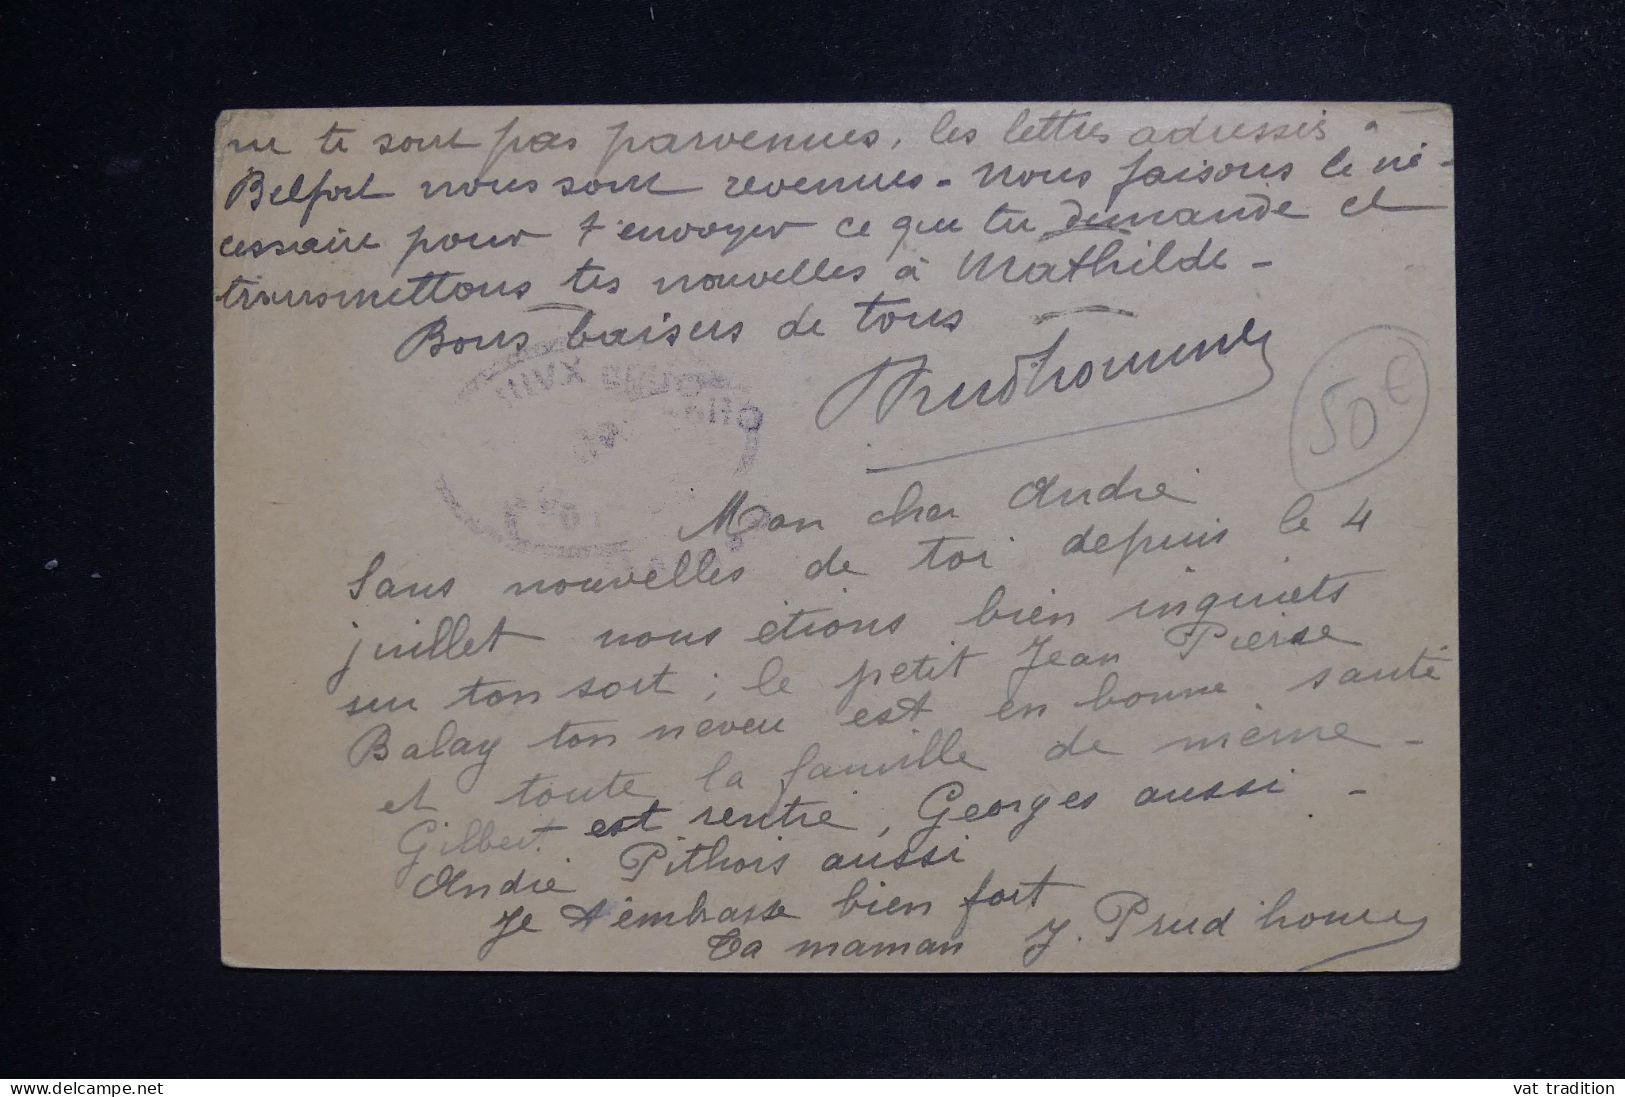 ne te sont pas parvenues, les lettres adressés à
Belfort nous sont revenues - nous faisons le né-
cessaire pour t'envoyer ce que tu demande et
transmettons tes nouvelles à Mathilde -
Bons baisers de tous
Prudhomme
50€
Mon cher André
Sans nouvelles de toi depuis le 4
juillet nous étions bien inquiets
sur ton sort ; le petit Jean Pierre
Balay ton neveu est en bonne santé
et toute la famille de même -
Gilbert est rentré, Georges aussi -
André Pithois aussi
Je t'embrasse bien fort
Ta maman J. Prud'homme
delcampe.net
vat tradition